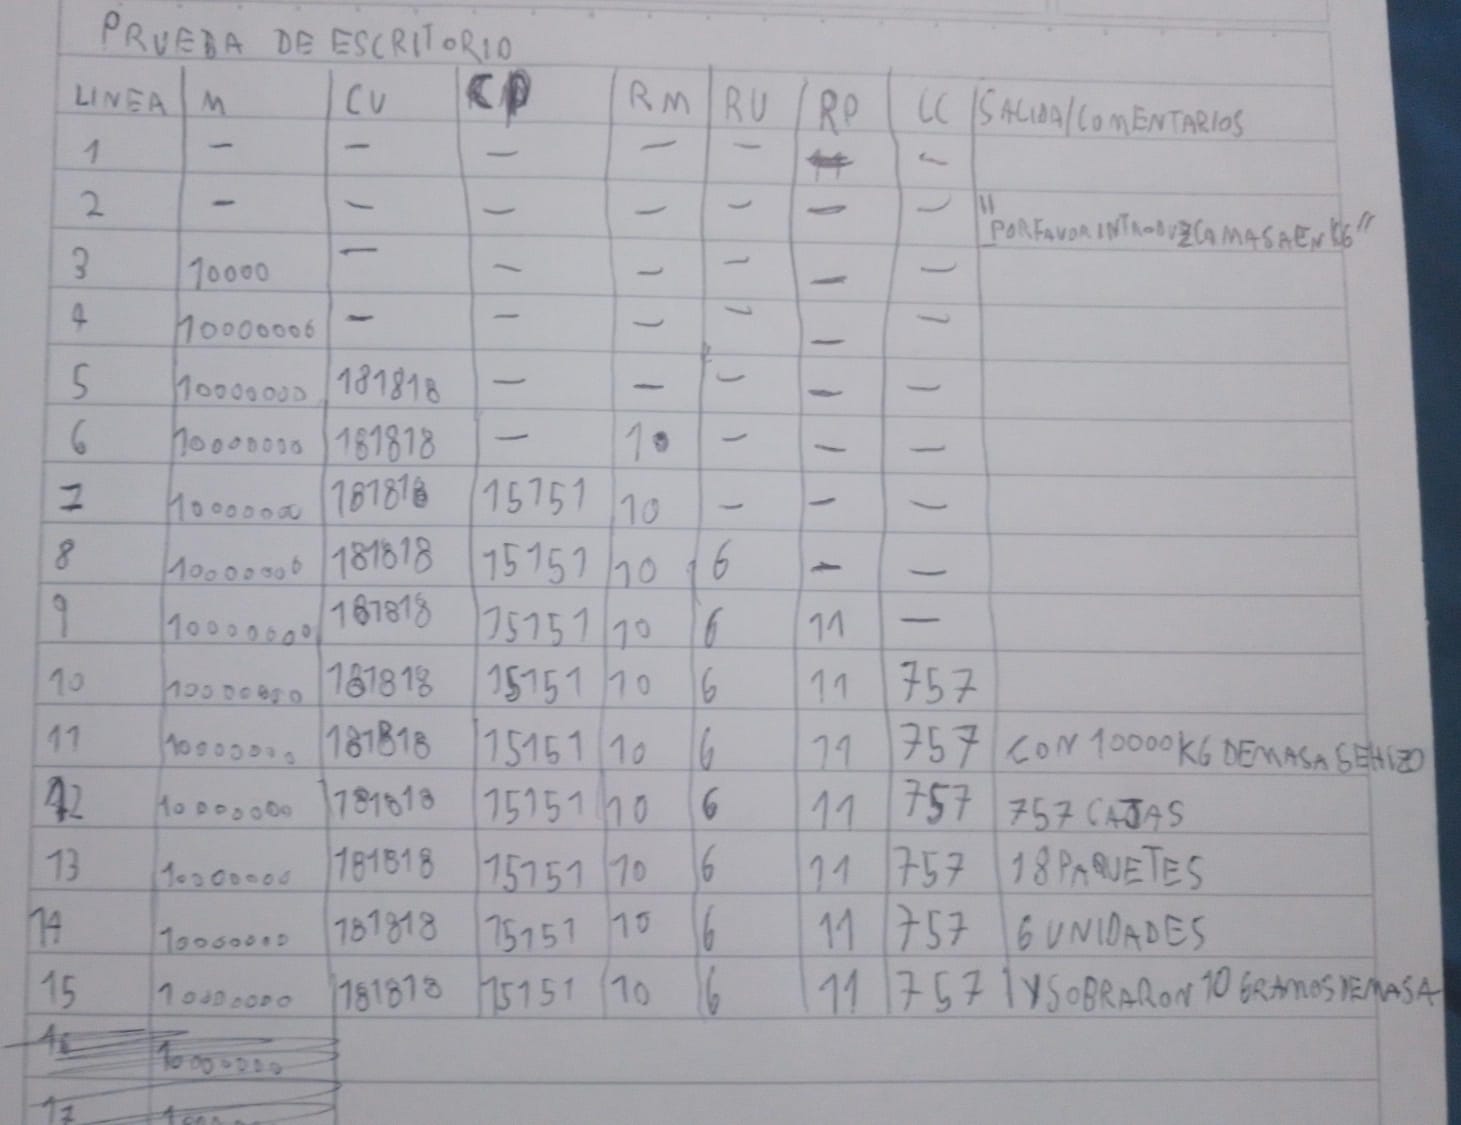 PRUEBA DE ESCRITORIO
LINEA M CU CP RM RU RP CC SALIDA/COMENTARIOS
1 - - - - - -
2 - - - - - - - "POR FAVOR INTRODUZCA MASA EN KG"
3 10000 - - - - - -
4 10000000 - - - - - -
5 10000000 181818 - - - - -
6 10000000 181818 - 10 - - -
7 10000000 181818 15151 10 - - -
8 10000000 181818 15151 10 6 - -
9 10000000 181818 15151 10 6 11 -
10 10000000 181818 15151 10 6 11 757
11 10000000 181818 15151 10 6 11 757 CON 10000KG DE MASA SE HIZO
12 10000000 181818 15151 10 6 11 757 757 CAJAS
13 10000000 181818 15151 10 6 11 757 18 PAQUETES
14 10000000 181818 15151 10 6 11 757 6 UNIDADES
15 10000000 181818 15151 10 6 11 757 Y SOBRARON 10 GRAMOS DE MASA
10000000
17